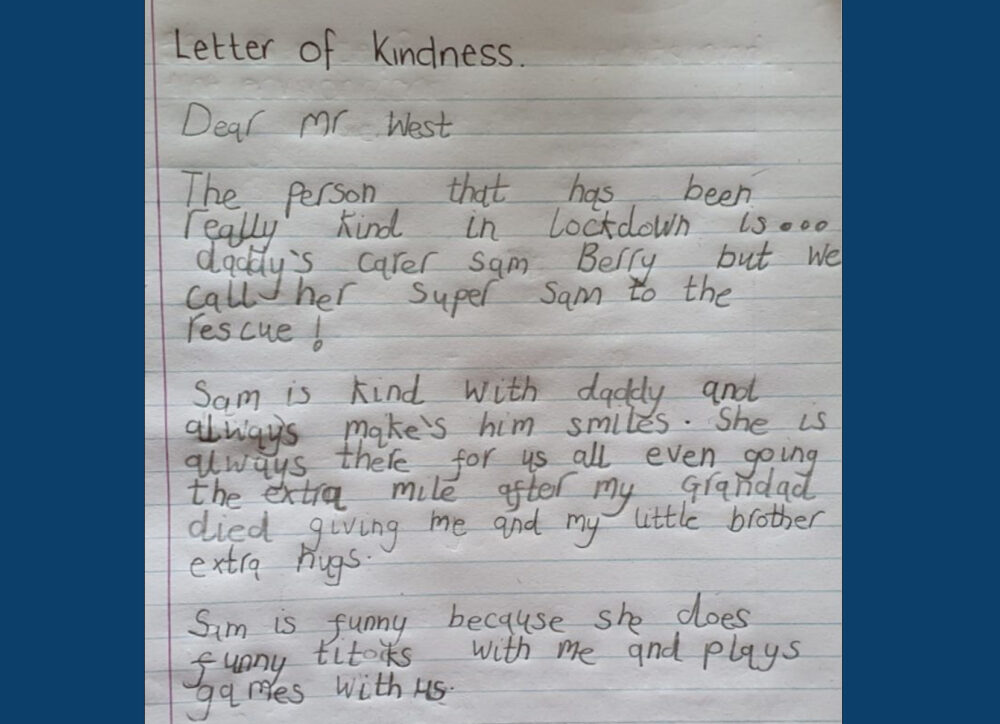 Letter of Kindness.
Dear Mr West
The person that has been
really kind in lockdown is...
daddy's carer Sam Berry but we
call her super Sam to the
rescue!
Sam is kind with daddy and
always make's him smiles. She is
always there for us all even going
the extra mile after my Grandad
died giving me and my little brother
extra hugs.
Sam is funny because she does
funny titoks with me and plays
games with us.